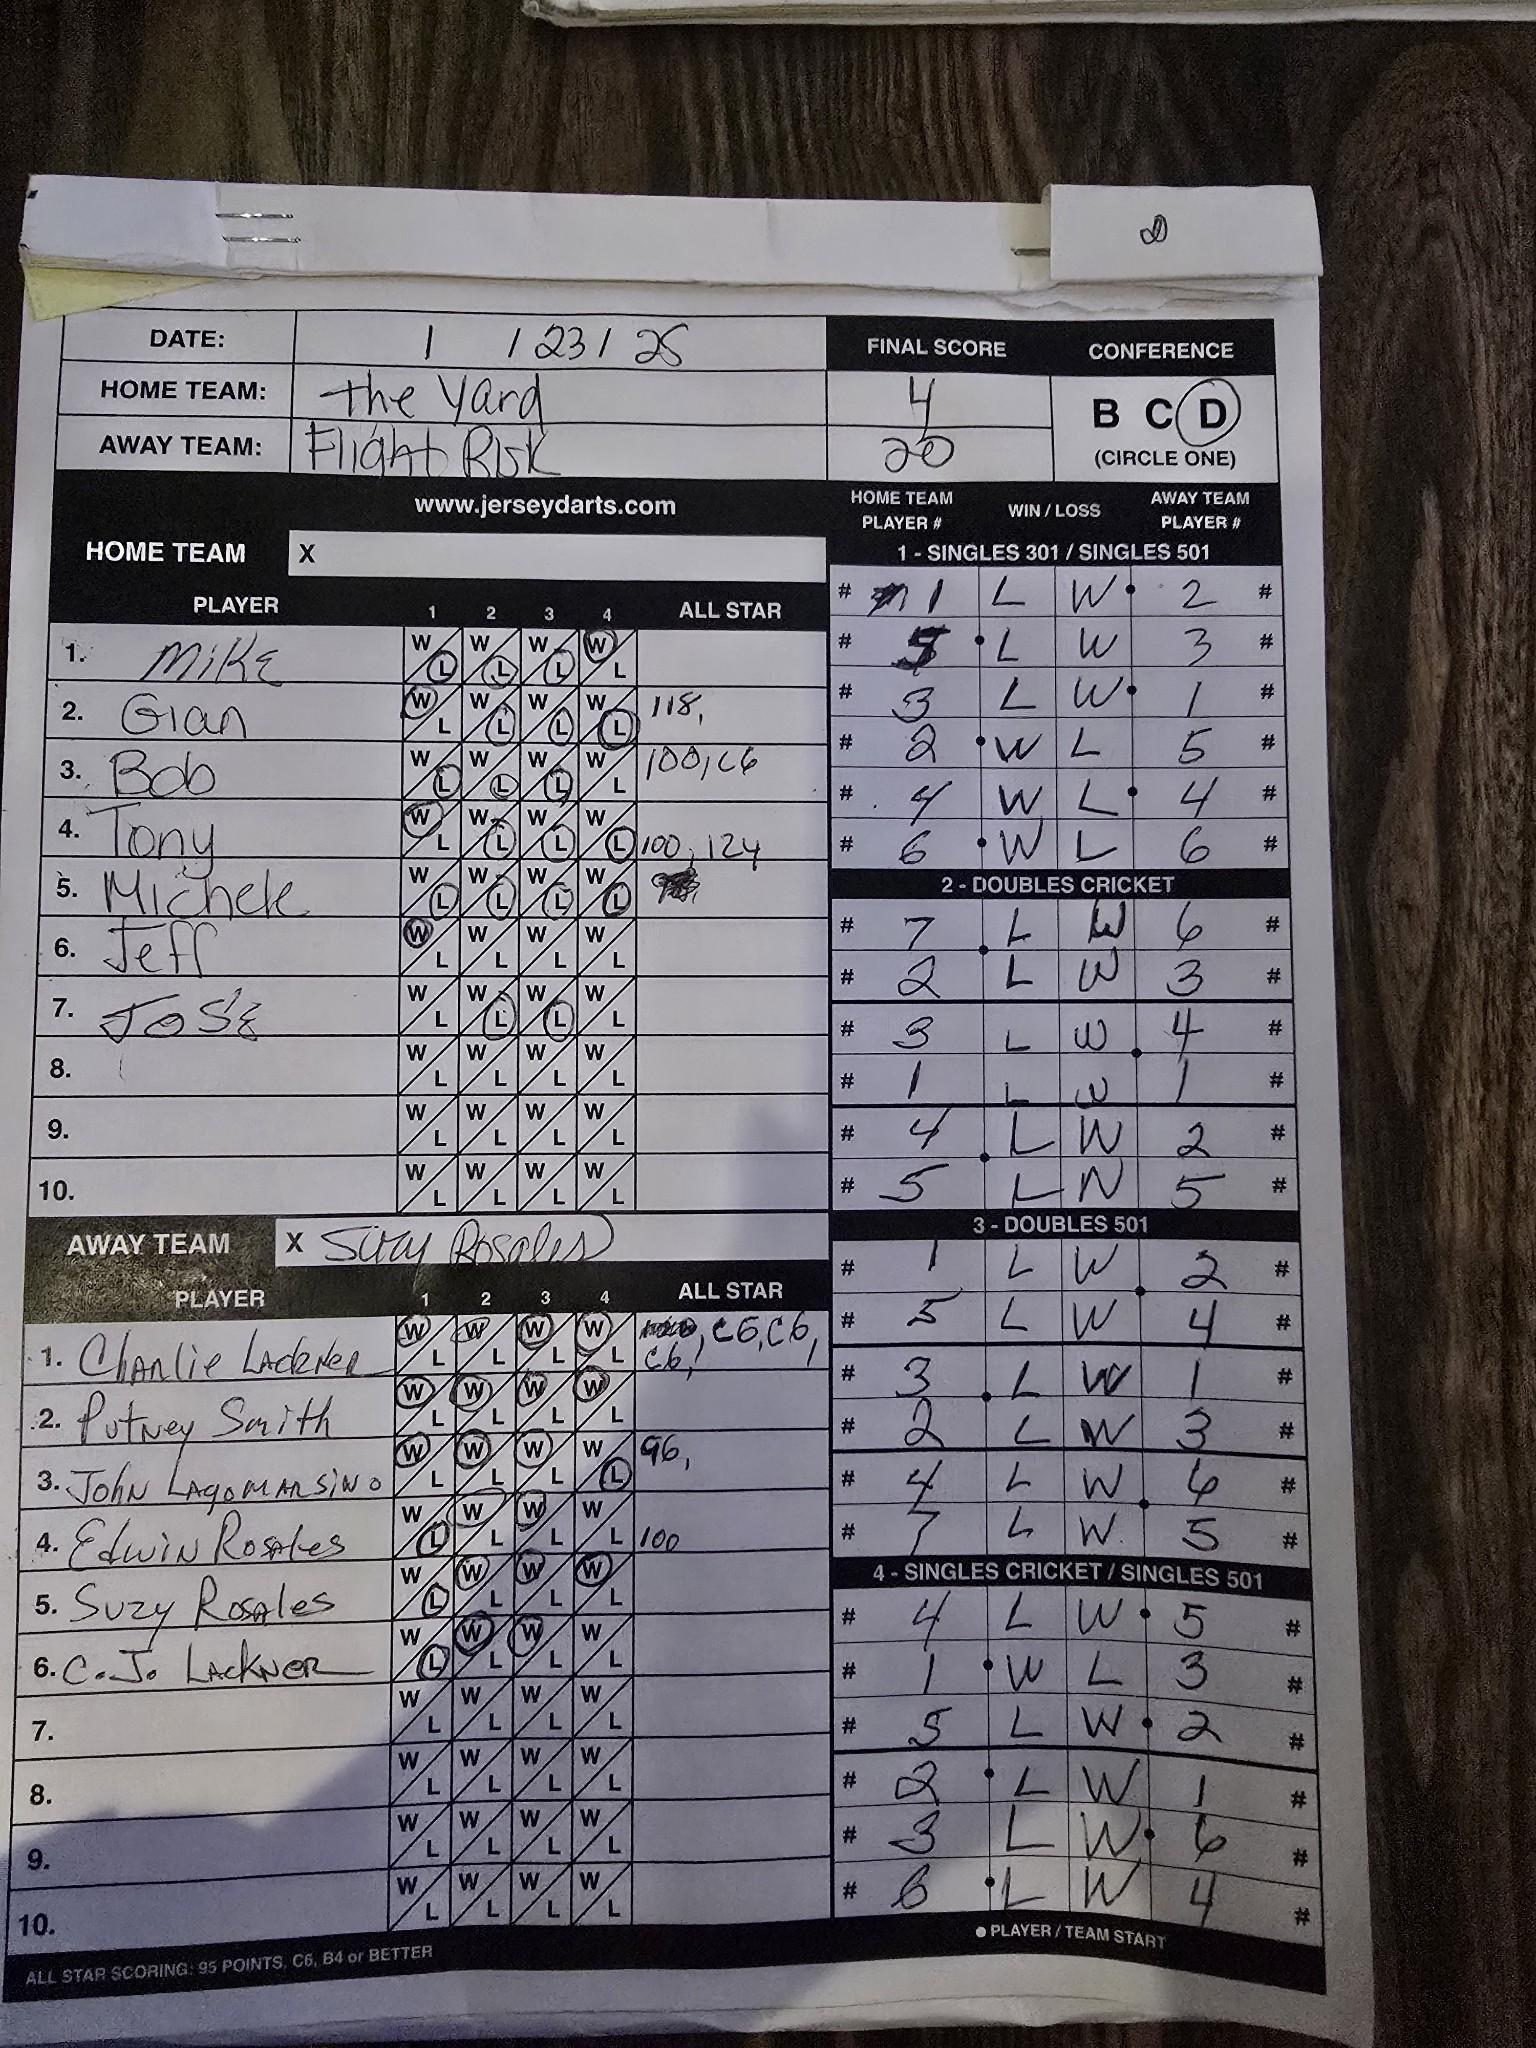 D
DATE: 1 / 23 / 25 FINAL SCORE CONFERENCE
HOME TEAM: the Yard 4 B C D
AWAY TEAM: Flight Risk 20 (CIRCLE ONE)
www.jerseydarts.com HOME TEAM PLAYER # WIN / LOSS AWAY TEAM PLAYER #
HOME TEAM X
PLAYER 1 2 3 4 ALL STAR
1. MIKE W L W L W L W L
2. Gian W L W L W L W L 118,
3. Bob W L W L W L W L 100, C6
4. Tony W L W L W L W L 100, 124
5. Michele W L W L W L W L
6. Jeff W L W L W L W L
7. JOSE W L W L W L W L
8. W L W L W L W L
9. W L W L W L W L
10. W L W L W L W L
AWAY TEAM X Suzy Rosales
PLAYER 1 2 3 4 ALL STAR
1. Charlie Lackner W L W L W L W L , C6, C6, C6,
2. Putney Smith W L W L W L W L
3. John Lagomarsino W L W L W L W L 96,
4. Edwin Rosales W L W L W L W L 100
5. Suzy Rosales W L W L W L W L
6. C.J. Lackner W L W L W L W L
7. W L W L W L W L
8. W L W L W L W L
9. W L W L W L W L
10. W L W L W L W L
ALL STAR SCORING: 95 POINTS, C6, B4 or BETTER
1 - SINGLES 301 / SINGLES 501
# 1 L W 2 #
# 5 L W 3 #
# 3 L W 1 #
# 2 W L 5 #
# 4 W L 4 #
# 6 W L 6 #
2 - DOUBLES CRICKET
# 7 L W 6 #
# 2 L W 3 #
# 3 L W 4 #
# 1 L W 1 #
# 4 L W 2 #
# 5 L W 5 #
3 - DOUBLES 501
# 1 L W 2 #
# 5 L W 4 #
# 3 L W 1 #
# 2 L W 3 #
# 4 L W 6 #
# 7 L W 5 #
4 - SINGLES CRICKET / SINGLES 501
# 4 L W 5 #
# 1 W L 3 #
# 5 L W 2 #
# 2 L W 1 #
# 3 L W 6 #
# 6 L W 4 #
PLAYER / TEAM START